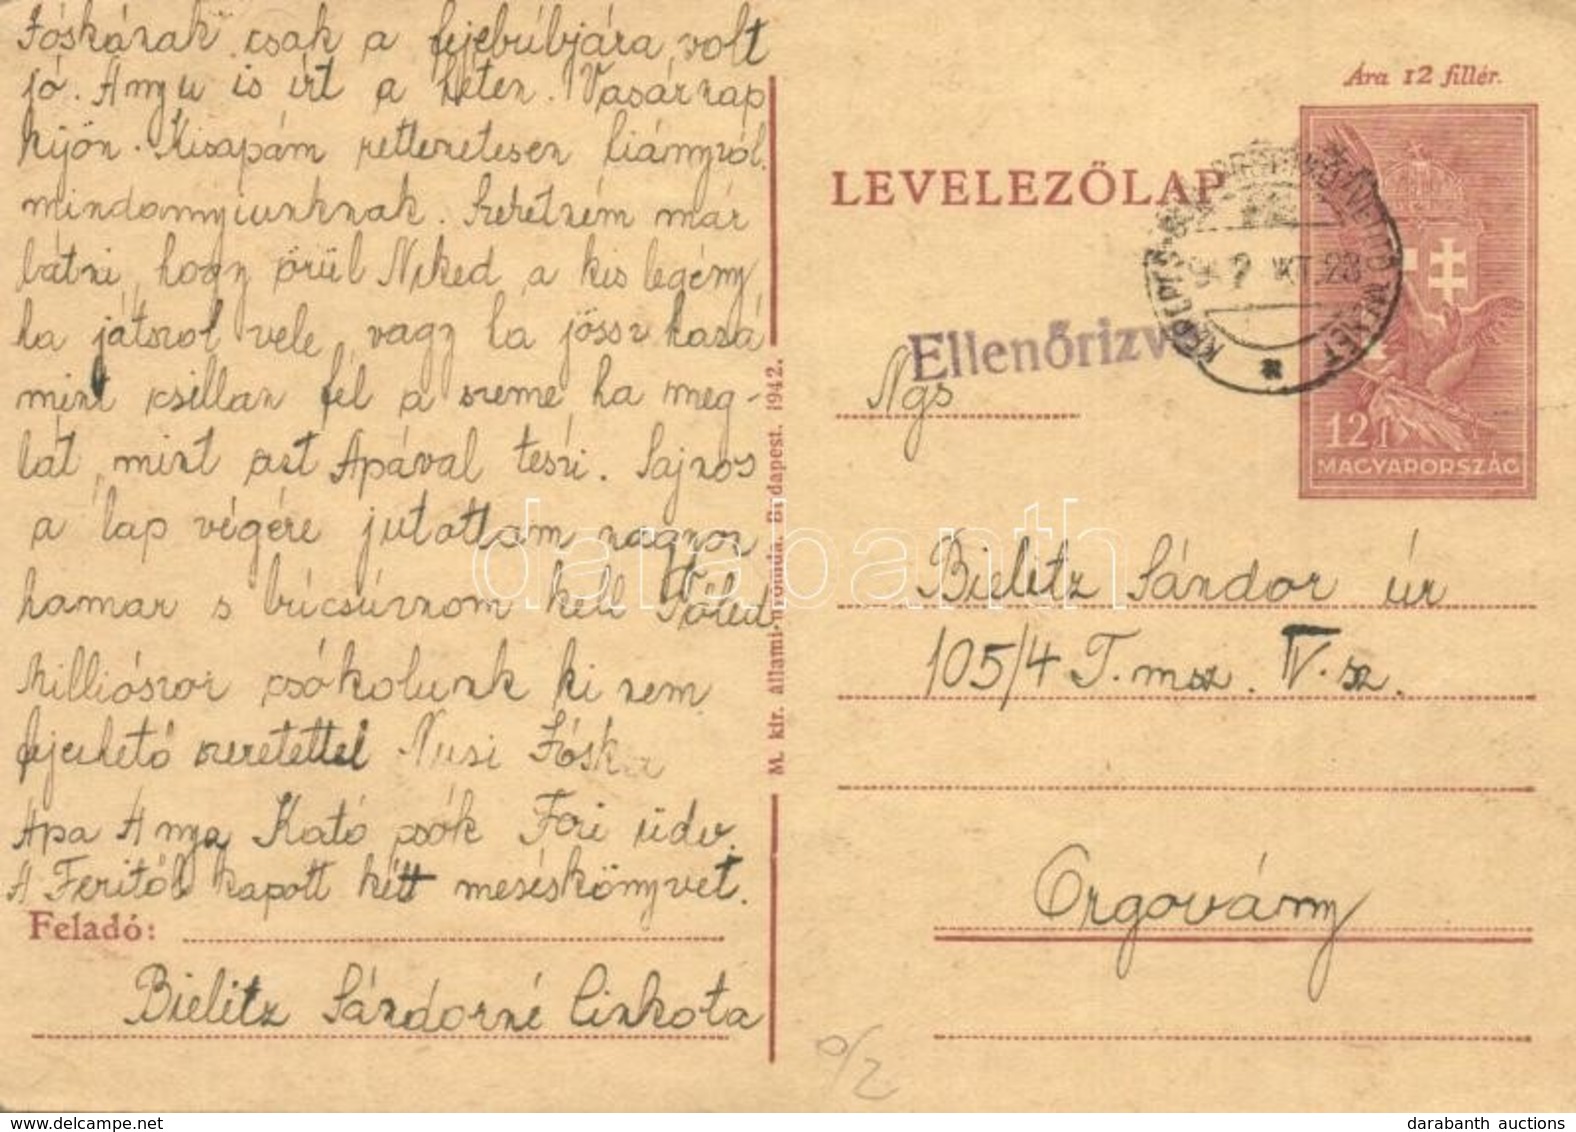 Jóskának csak a fejebúbjára volt
jó. Anyu is írt a héten. Vasárnap
kijön. Kisapám rettenetesen hiányzol
mindannyiunknak. Szeretném már
látni, hogy örül Neked a kis legény
ha játszol vele, vagy ha jössz haza
mint csillan fel a szeme, ha meg-
lát, mint azt Apával teszi. Sajnos
a lap végére jutottam nagyon
hamar s búcsúznom kell Tőled
Milliószor csókolunk ki nem
fejezhető szeretettel Nusi Jóska
Apa Anya Kató csók Feri üdv.
A Feritől kapott két meséskönyvet.
Feladó:
Bielitz Sándorné Cinkota
M. kir. Állami nyomda. Budapest. 1942.
Ára 12 fillér.
LEVELEZŐLAP
Ellenőrizve
12 f
MAGYARORSZÁG
Ngs
Bielitz Sándor úr
105/4 T. msz. V. sz.
Orgovány
darabanth
darabanth auctions